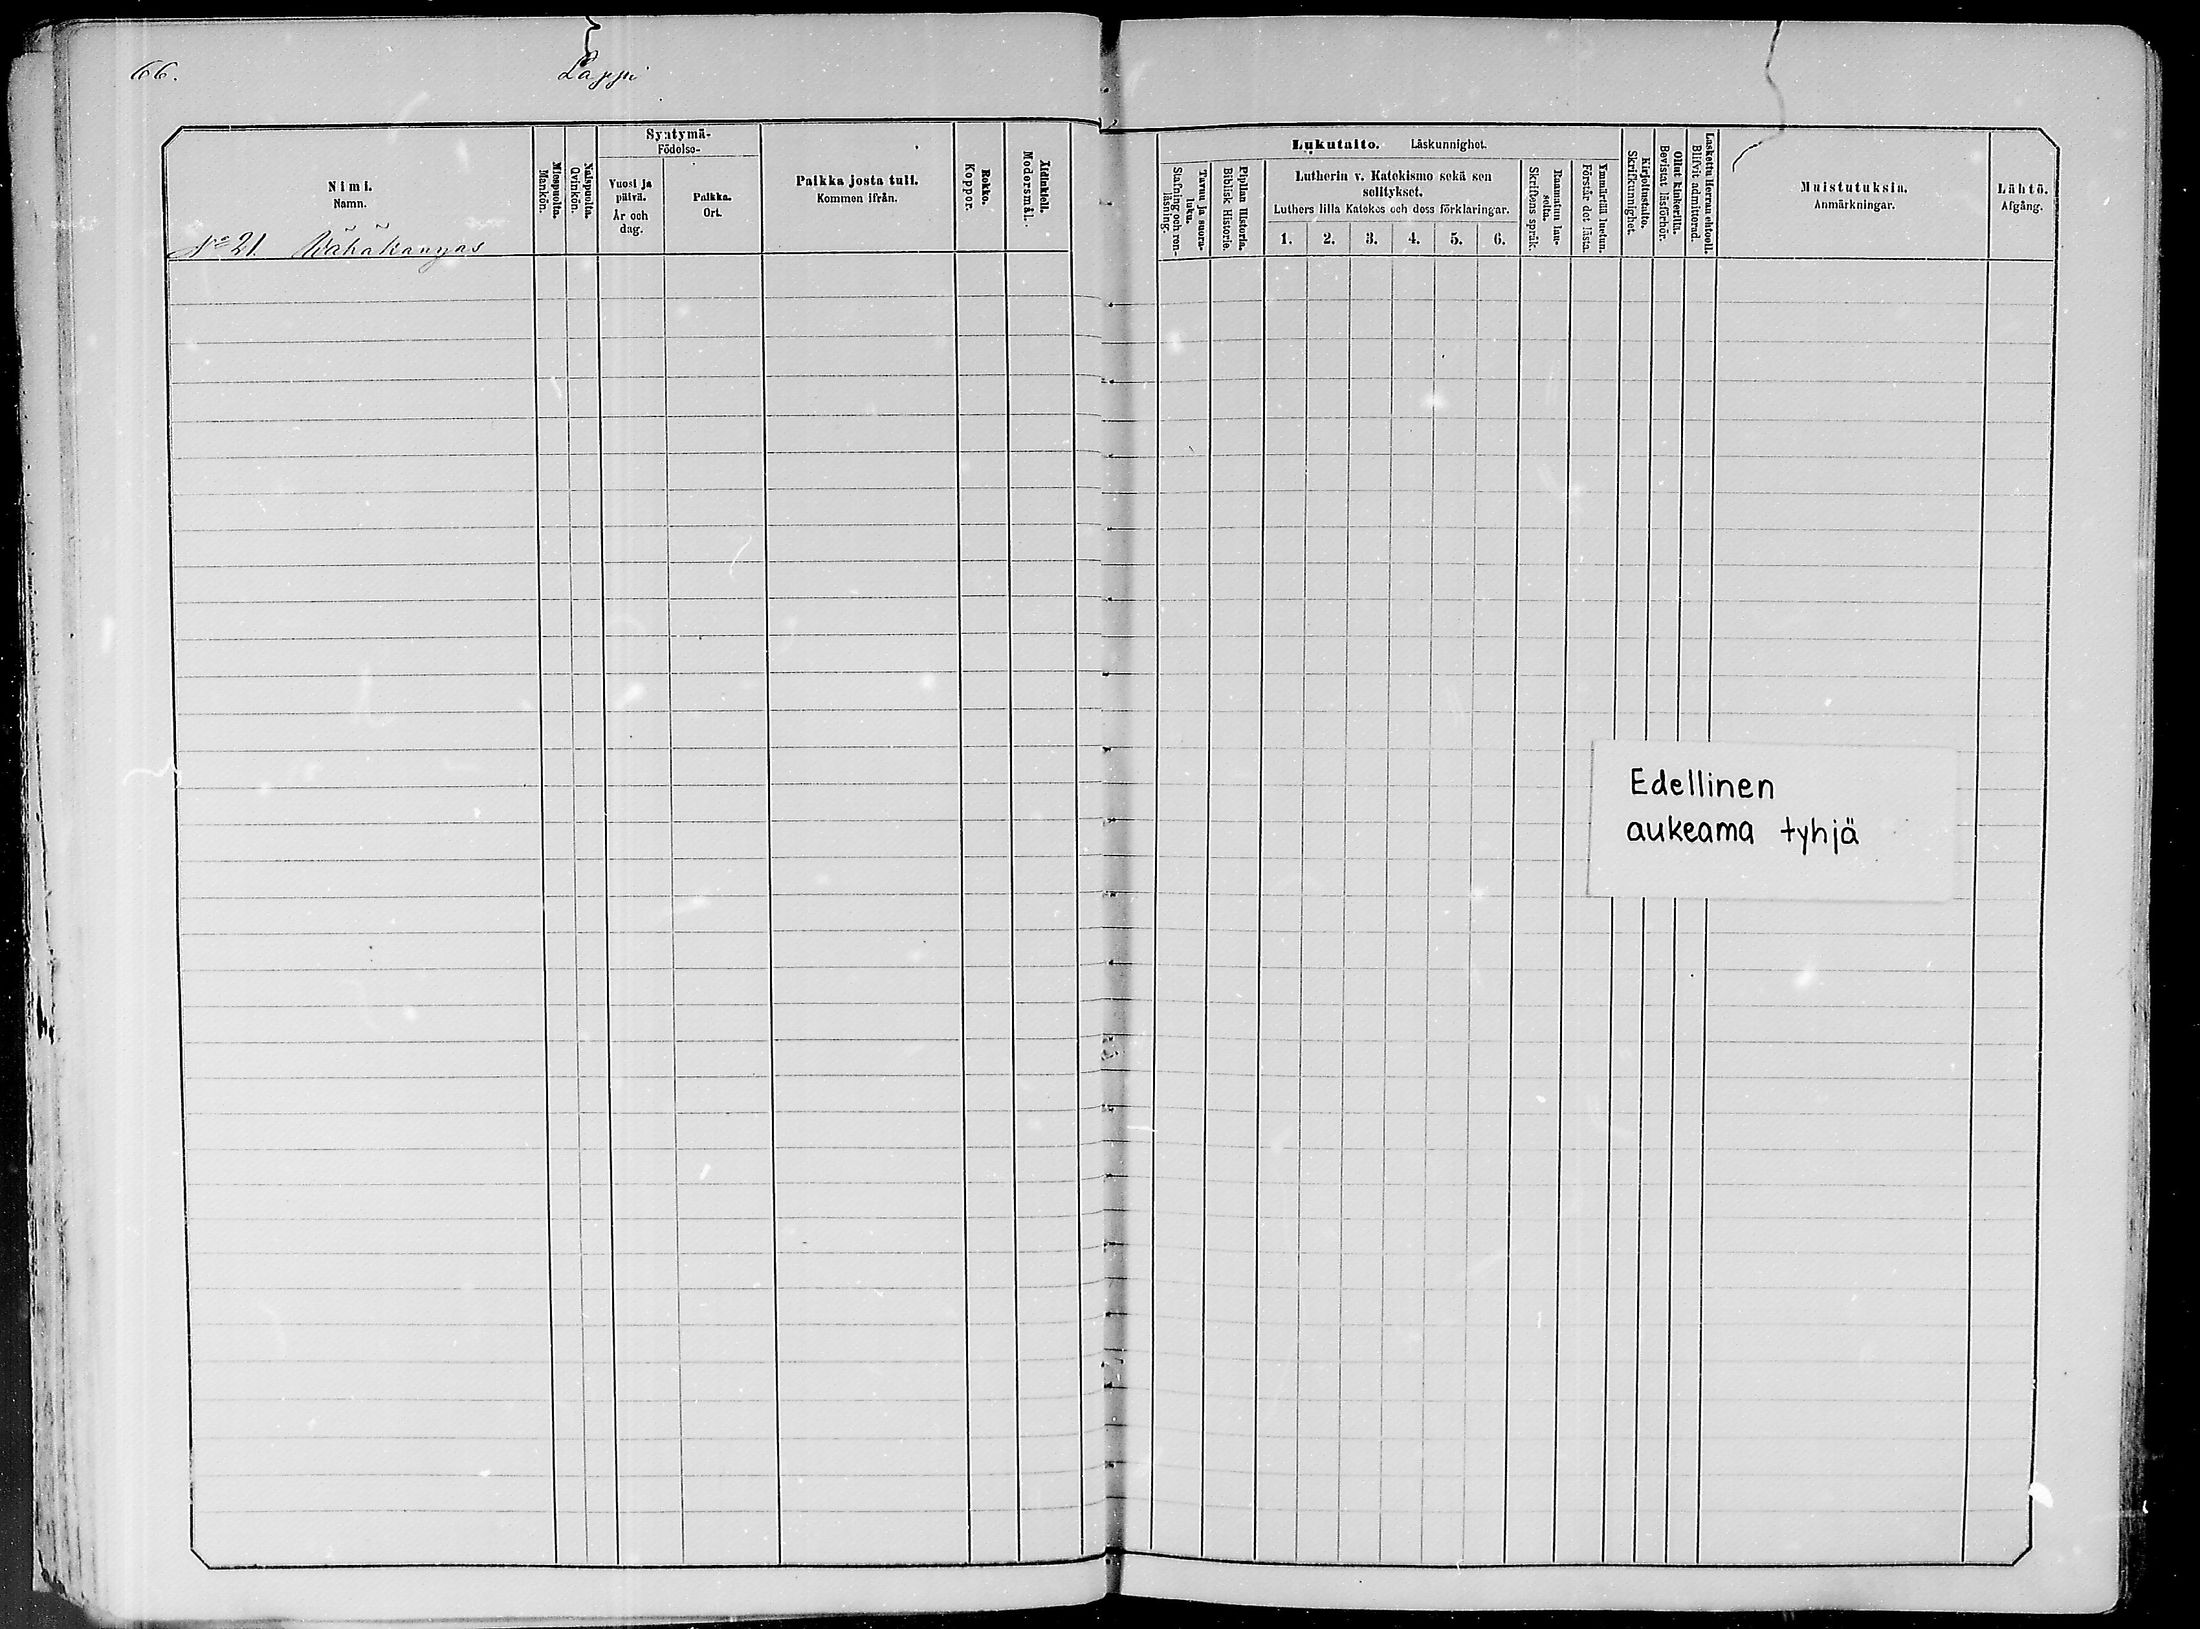 66.
Lappi
Nimi.
Namn.
Miespuolia.
Mankön.
Naispuolia.
Qvinkön.
Syntymä-
Födelse-
Vuosi ja
päivä.
År och
dag.
Paikka.
Ort.
Paikka josta tuli.
Kommen ifrån.
Rokko.
Koppor.
Äidinkieli.
Modersmål.
No 21. Wähäkangas
Lukutaito. Läskunnighet.
Tavuu ja suora-
luku.
Stafning och ren-
läsning.
Piplian Historia.
Biblisk Historie.
Lutherin v. Katekismo sekä sen
selitykset.
Luthers lilla Katekes och dess förklaringar.
1. 2. 3. 4. 5. 6.
Raamatun lau-
selta.
Skriftens språk.
Ymmärtää luetun.
Förstår det lästa.
Kirjoitustaito.
Skrifkunnighet.
Ollut kinkerillä.
Bevistat läsförhör.
Laskettu Herran ehtoolI.
Blifvit admitterad.
Muistutuksia.
Anmärkningar.
Lähtö.
Afgång.
Edellinen
aukeama tyhjä